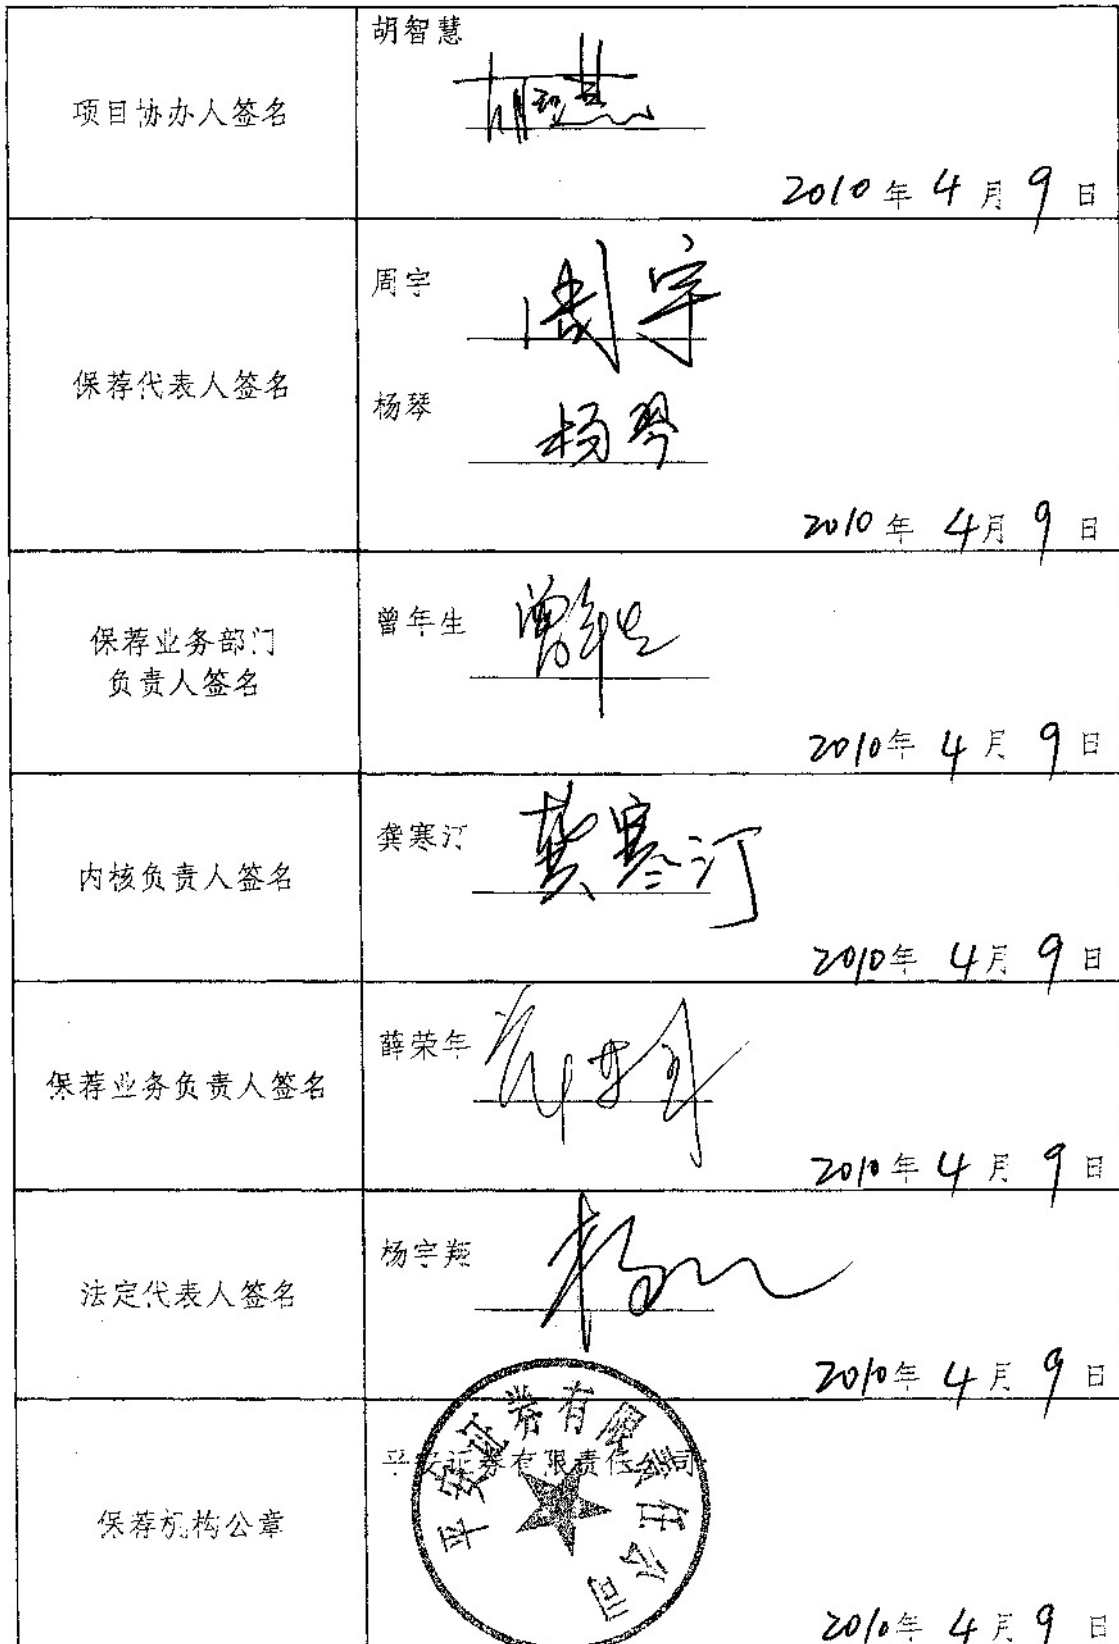 项目协办人签名
胡智慧
胡智慧
2010年4月9日
保荐代表人签名
周宇
周宇
杨琴
杨琴
2010年4月9日
保荐业务部门
负责人签名
曾年生
曾年生
2010年4月9日
内核负责人签名
龚寒汀
龚寒汀
2010年4月9日
保荐业务负责人签名
薛荣年
薛荣年
2010年4月9日
法定代表人签名
杨宇翔
2010年4月9日
保荐机构公章
平安证券有限责任公司
平安证券有限责任公司
2010年4月9日